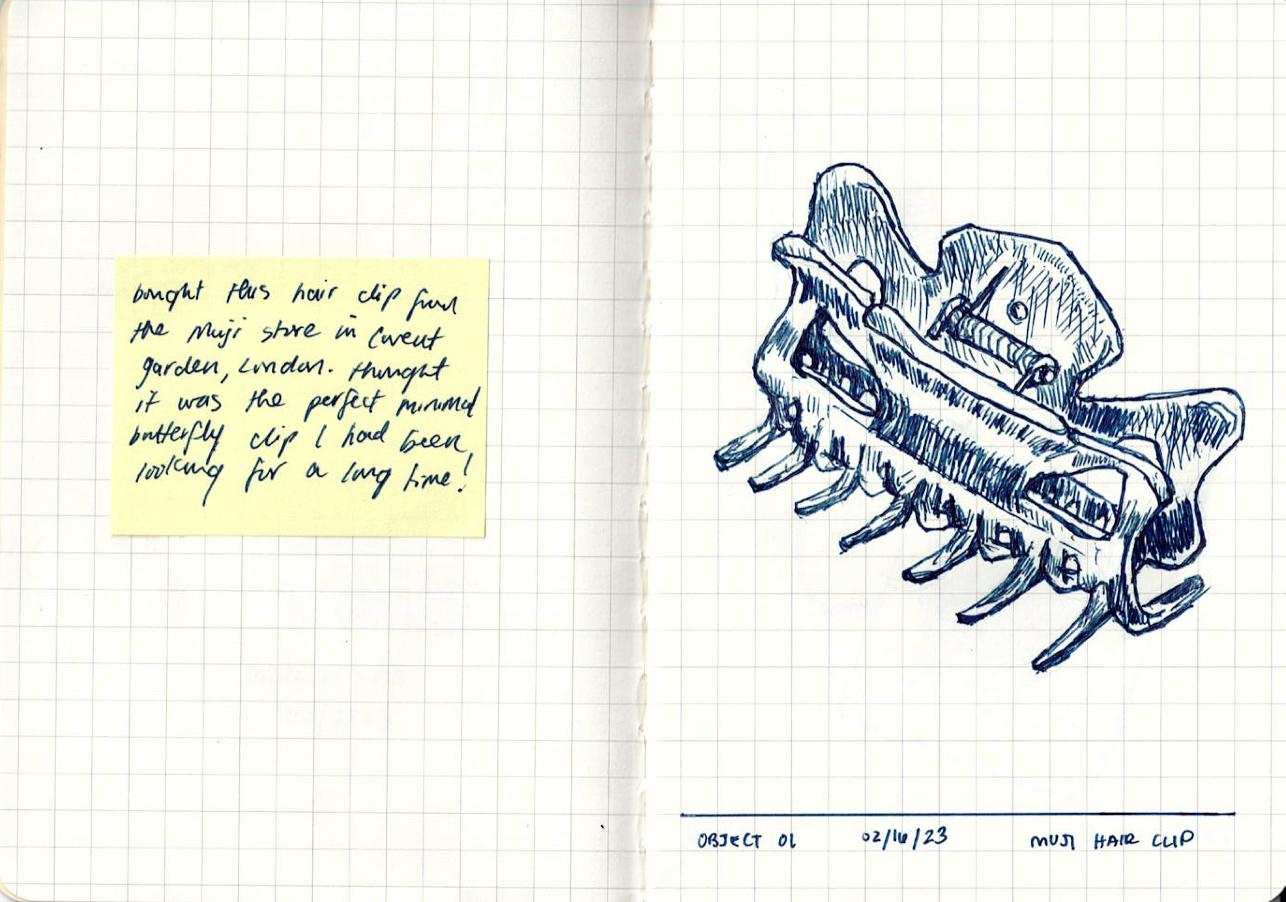 bought this hair clip from
the Muji store in Covent
garden, London. thought
it was the perfect minimal
butterfly clip I had been
looking for a long time!
OBJECT 01 02/16/23 MUJI HAIR CLIP